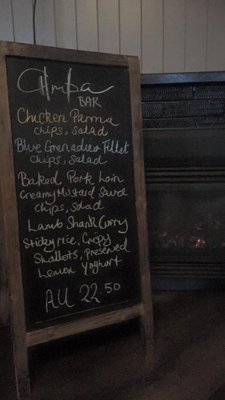 BAR
Chicken Parma
chips, Salad
Blue Grenadier Fillet
chips, Salad
Baked Pork Loin
Creamy Mustard Sauce
chips, Salad
Lamb Shank Curry
Sticky rice, Crispy
Shallots, Preserved
Lemon Yoghurt
All 22.50